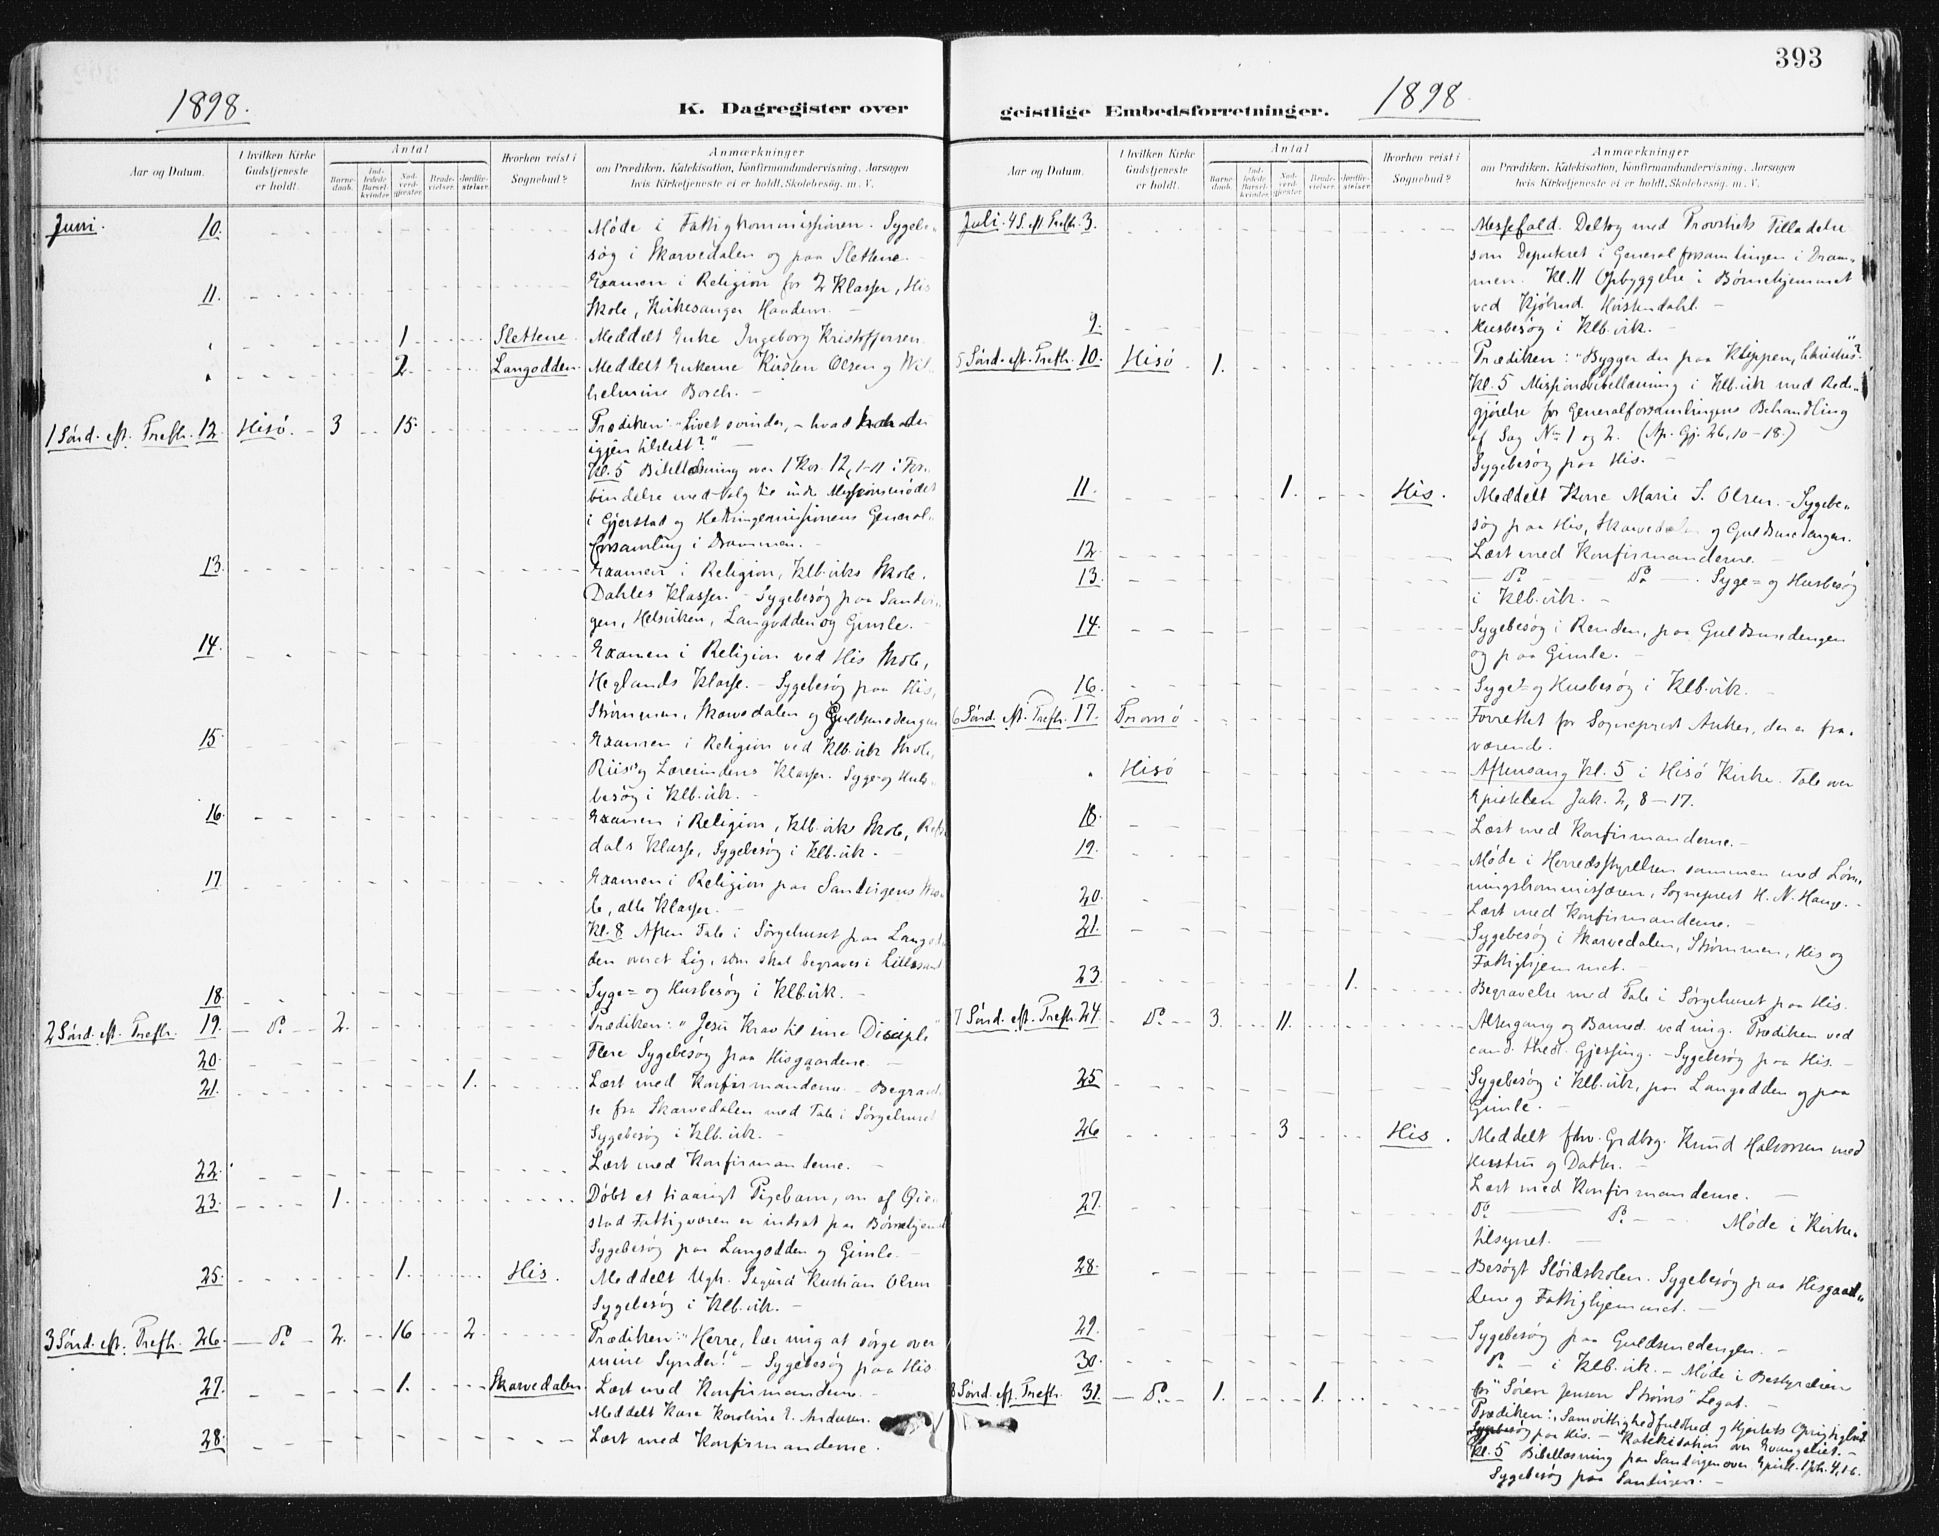 393
1898.
K. Dagregister over
geistlige Embedsforretninger.
1898
Aar og Datum.
I hvilken Kirke Gudstjeneste er holdt.
Antal
Barne-daab.
Ind-ledede Barsel-kvinder.
Nad-verd-gjester.
Brude-vielser.
Jordfæ-stelser.
Hvorhen reist i Sognebud?
Anmærkninger
om Prædiken, Katekisation, Konfirmandundervisning, Aarsagen
hvis Kirketjeneste ei er holdt, Skolebesøg. m. V.
Juni. 10. Møde i Fattigkommissionen. Sygebe-
søg i Skarvedalen og paa Slettene.
11. Examen i Religion for 2 Klasser, His
Skole, Kirkesanger
1 Slettene. Meddelt Enke Ingeborg Kristoffersen
2 Langodden. Meddelt Enkerne Kirsten Olsen og Wil-
helmine Borch.
1 Sønd. eft. Trefh. 12. Hisø. 3 15. Prædiken: "Livet svinder, - hvad
igjen
Kl. 5 Bibellæsning over 1 Kor. 12, 1-11 i For-
bindelse med Valg til indre Missionsmødet
i Gjerstad og Hedningemissionens General-
forsamling i Drammen.
13. Examen i Religion, Klb.viks Skole.
Dahles Klasser. - Sygebesøg paa Sandvi-
gen, Helsviken, Langodden og Gimle.
14. Examen i Religion ved His Skole,
Heglands Klasse. - Sygebesøg paa His,
Strømmen, Skarvedalen og Guldsmedengen
15 Examen i Religion ved Klb.vik Skole,
Riis' og Lærerindens Klasser. Syge- og Hus-
besøg i Klb.vik.
16. Examen i Religion, Klb.viks Skole,
dals Klasse, Sygebesøg i Klb.vik.
17 Examen i Religion paa Sandvigens Sko-
le, alle Klasser.
Kl. 8 Aften Tale i Sørgehuset paa Langod-
den over et Lig, som skal begraves i Lillesand
18. Syge- og Husbesøg i Klb.vik.
2 Sønd. eft. Trefh. 19. Do 2. Prædiken: "Jesu Krav til sine Disciple"
20. Flere Sygebesøg paa Hisgaardene.
21. 1. Læst med Konfirmanderne. - Begravel-
se fra Skarvedalen med Tale i Sørgehuset
Sygebesøg i Klb.vik.
22. Læst med Konfirmanderne.
23. 1. Døbt et tiaarigt Pigebarn, om af Øie-
stad Fattigvæsen er indsat paa Børnehjemmet
Sygebesøg paa Langodden og Gimle.
25. 1. His. Meddelt Ugk. Sigurd Kristian Olsen
Sygebesøg i Klb.vik.
3 Sønd. eft. Trefh. 26. Do 2. 16 2 Prædiken: "Herre, lær mig at sørge over
mine Synder!" - Sygebesøg paa His
27. 1. Skarvedalen. Læst med Konfirmanderne.
Meddelt Kone Karoline E. Andersen.
28. Læst med Konfirmanderne.
Aar og Datum.
I hvilken Kirke Gudstjeneste er holdt.
Antal
Barne-daab.
Ind-ledede Barsel-kvinder.
Nad-verd-gjester.
Brude-vielser.
Jordfæ-stelser.
Hvorhen reist i Sognebud?
Anmærkninger
om Prædiken, Katekisation, Konfirmandundervisning, Aarsagen
hvis Kirketjeneste ei er holdt, Skolebesøg. m. V.
Juli. 4 S. eft Trefh. 3. Messefald. Deltog med Provstiets Tilladelse
som Deputeret i Generalforsamlingen i Dram-
men. Kl. 11 Opbyggelse i Børnehjemmet
ved Kjøbmd.
9. Husbesøg i Klb.vik.
5 Sønd. eft. Trefh. 10. Hisø 1. Prædiken: "Bygger du paa Klippen, Christus?"
Kl. 5 Missionsbibellæsning i Klb.vik med Rede-
gjørelse for Generalforsamlingens Behandling
af Sag No 1 og 2. (Ap. Gj. 26, 10-18.)
Sygebesøg paa His.
11. 1. His. Meddelt Kone Marie S. Olsen. - Sygebe-
søg paa His, Skarvedalen og Guldsmedengen.
12. Læst med Konfirmanderne.
13. Do Do Syge- og Husbesøg
i Klb.vik.
14. Sygebesøg i Renden, paa Guldsmedengen
og paa Gimle.
16. Syge- og Husbesøg i Klb.vik.
6 Sønd. eft. Trefh. 17. Tromø Forrettet for Sogneprest Anker, der er fra-
værende.
Hisø Aftensang Kl. 5 i Hisø Kirke. Tale over
Epistelen Jak. 2, 8-17.
18. Læst med Konfirmanderne.
19. Møde i Herredsstyrelsen sammen med Løn-
ningskommissæren, Sogneprest H. N. Hauge.
20. Læst med Konfirmanderne.
21. Sygebesøg i Skarvedalen, Strømmen, His og
Fattighjemmet.
23. 1. Begravelse med Tale i Sørgehuset paa His.
7 Sønd. eft. Trefh. 24 Do 3. 11. Altergang og Barned. ved mig. Prædiken ved
cand. theol. Gjessing. - Sygebesøg paa His.
25 Sygebesøg i Klb.vik, paa Langodden og paa
Gimle.
26 3 His. Meddelt fhv. Grdbrg. Knud Halvorsen med
Hustru og Datter.
Læst med Konfirmanderne.
27. Do Do Møde i Kirke-
tilsynet.
28. Besøgt Sløidskolen. Sygebesøg paa Hisgaar-
dene og Fattighjemmet.
29. Sygebesøg paa Guldsmedengen.
30. Do i Klb.vik. - Møde i Bestyrelsen
for "Søren Jensen Strøms" Legat.
8 Sønd. eft. Trefh. 31. Do 1. 1. Prædiken: "Samvittighedsfuldhed og Hjertets Oprigtighed"
Sygebesøg paa His. - Katekisation over Evangeliet.
Kl. 5 Bibellæsning paa Sandvigen over
Sygebesøg paa Sandvigen.